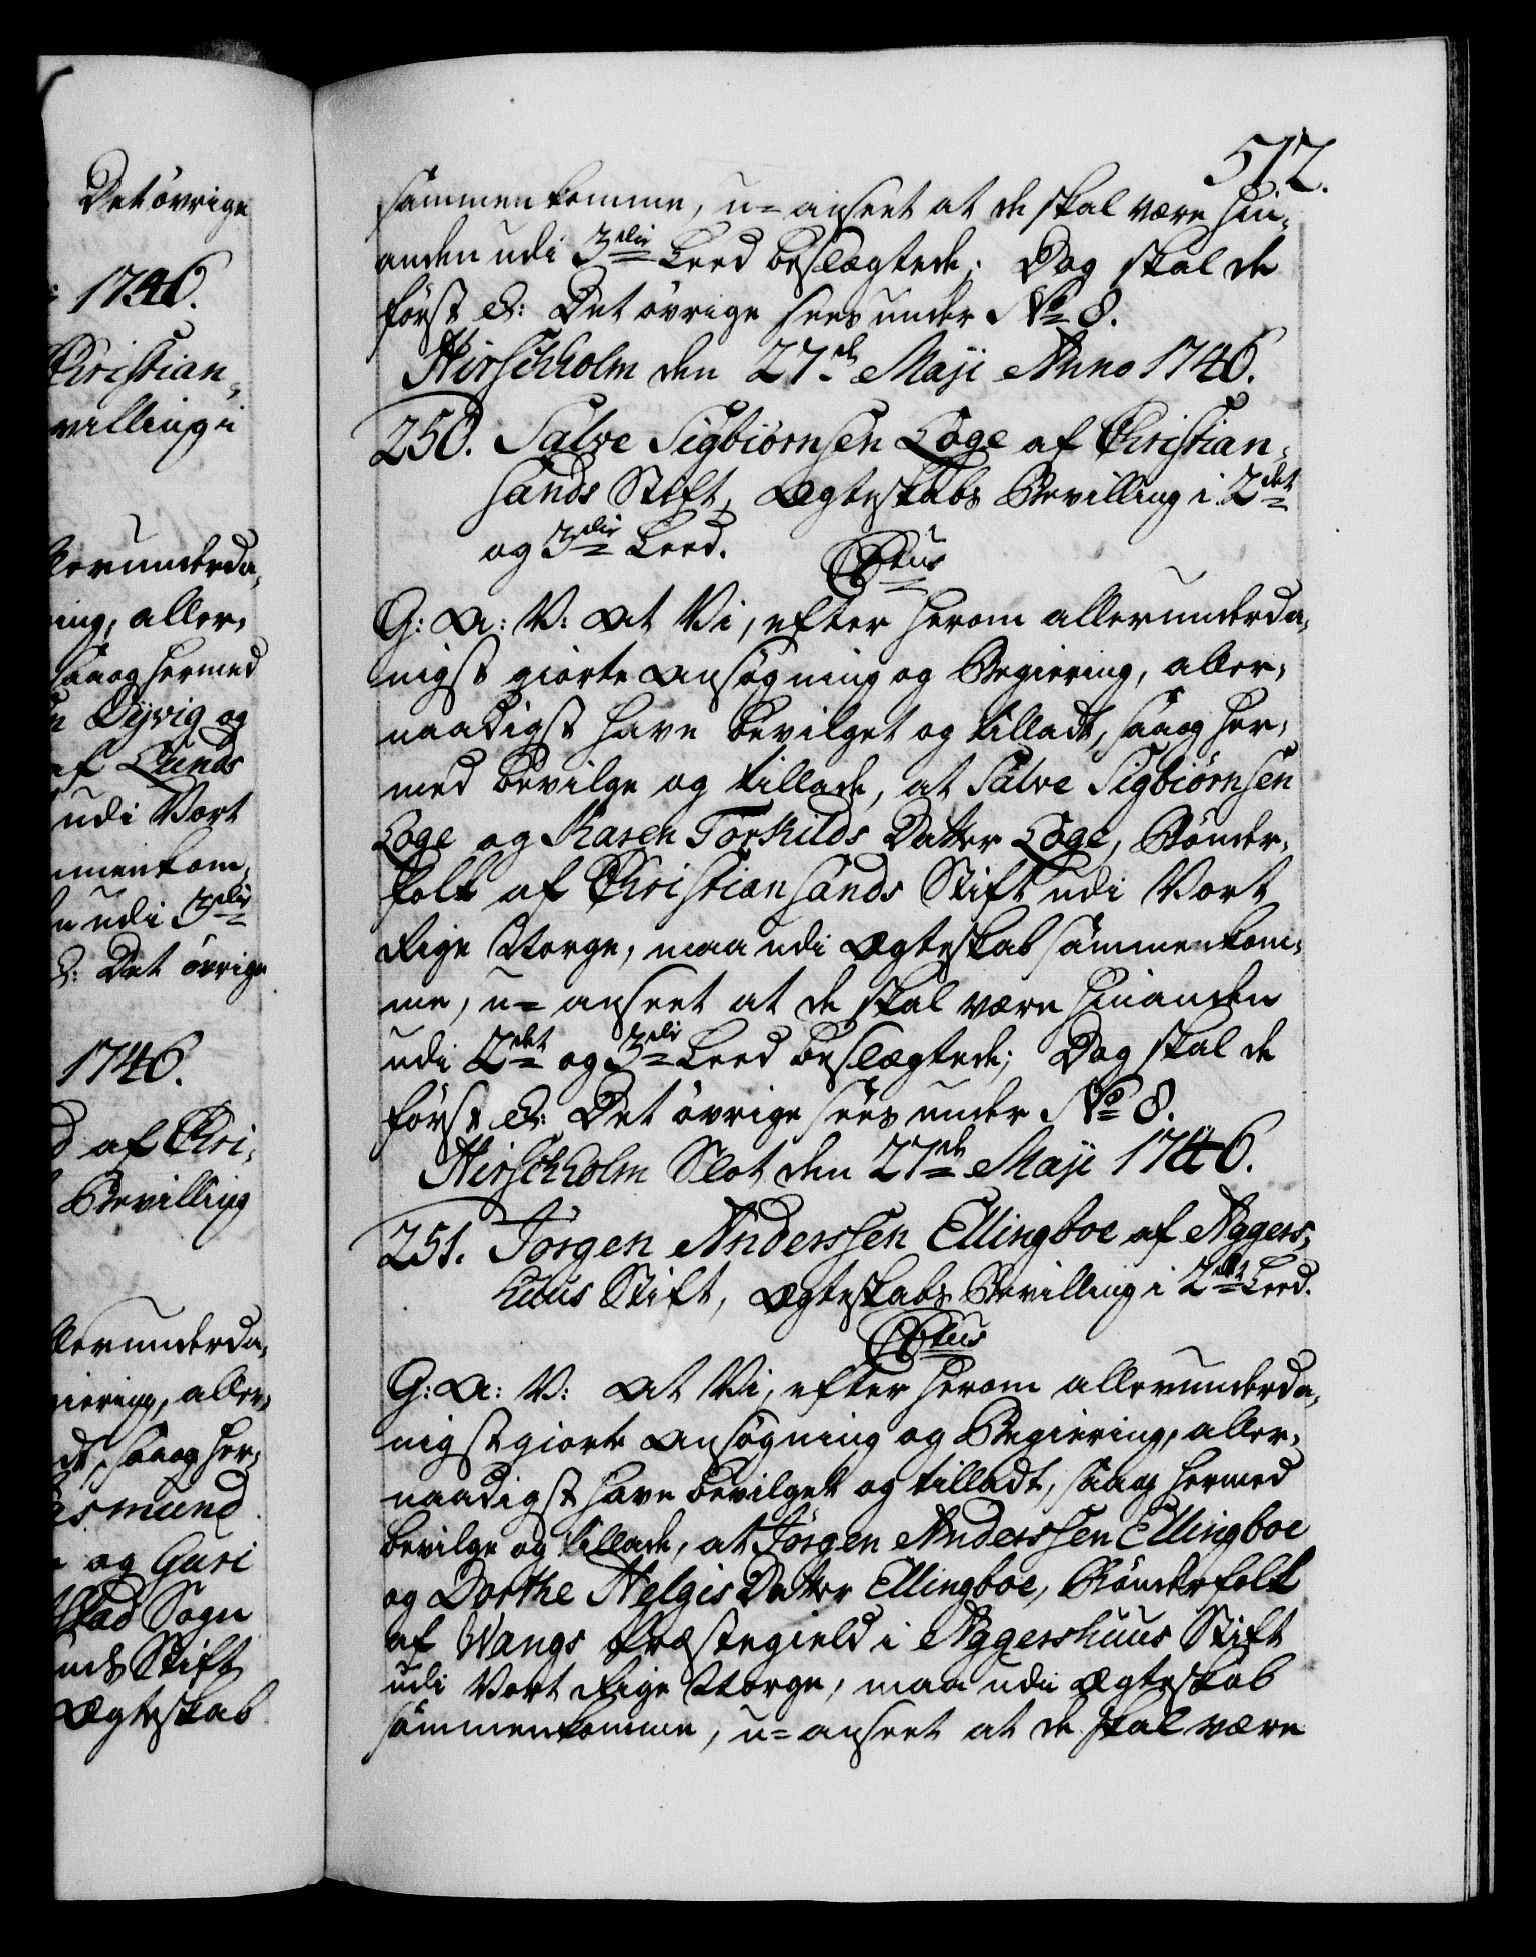 Det övrige
1746.
Christian,
villing i
llerunderda,
ing, aller,
saa og hermed
n Dyvig og
af Lunds
udi Vort
mmenkom,
n udi 3die
&: Det övrige
1746.
d af Chri,
Bevilling
llerunderda,
giering, aller,
dt, saa og her,
Asmund
og Guri
stad Sogn
unds Stift
Ægteskab
512.
sammenkomme, u= anseet at de skal være hin,
anden udi 3die Leed beslægtede; Dog skal de
först &: Det övrige sees under No 8.
Hirschholm den 27de Maji Anno 1746.
250. Salve Sigbiörnsen Loge af Christian,
sands Stift, Ægteskabs Bevilling i 2det
og 3die Leed.
C6tus
G: A: V: At Vi, efter herom allerunderda,
nigst giorte Ansögning og Begiering, aller,
naadigst have bevilget og tilladt, saa og her,
med bevilge og tillade, at Salve Sigbiörnsen
Loge og Karen Torkilds Datter Loge, Bönder,
folk af Christiansands Stift udi Vort
Rige Norge, maa udi Ægteskab sammenkom,
me, u= anseet at de skal være hinanden
udi 2det og 3die Leed beslægtede; Dog skal de
först &: Det övrige sees under No 8.
Hirschholm Slot den 27de Maji 1746.
251. Jörgen Anderssen Ellingboe af Aggers,
huus Stift, Ægteskabs Bevilling i 2det Leed.
C6tus
G: A: V: At Vi, efter herom allerunderda,
nigst giorte Ansögning og Begiering, aller,
naadigst have bevilget og tilladt, saa og hermed
bevilge og tillade, at Jörgen Anderssen Ellingboe
og Dorthe Helgis Datter Ellingboe, Bönderfolk
af Wangs Præstegield i Aggershuus Stift
udi Vort Rige Norge, maa udi Ægteskab
sammenkomme, u= anseet at de skal være